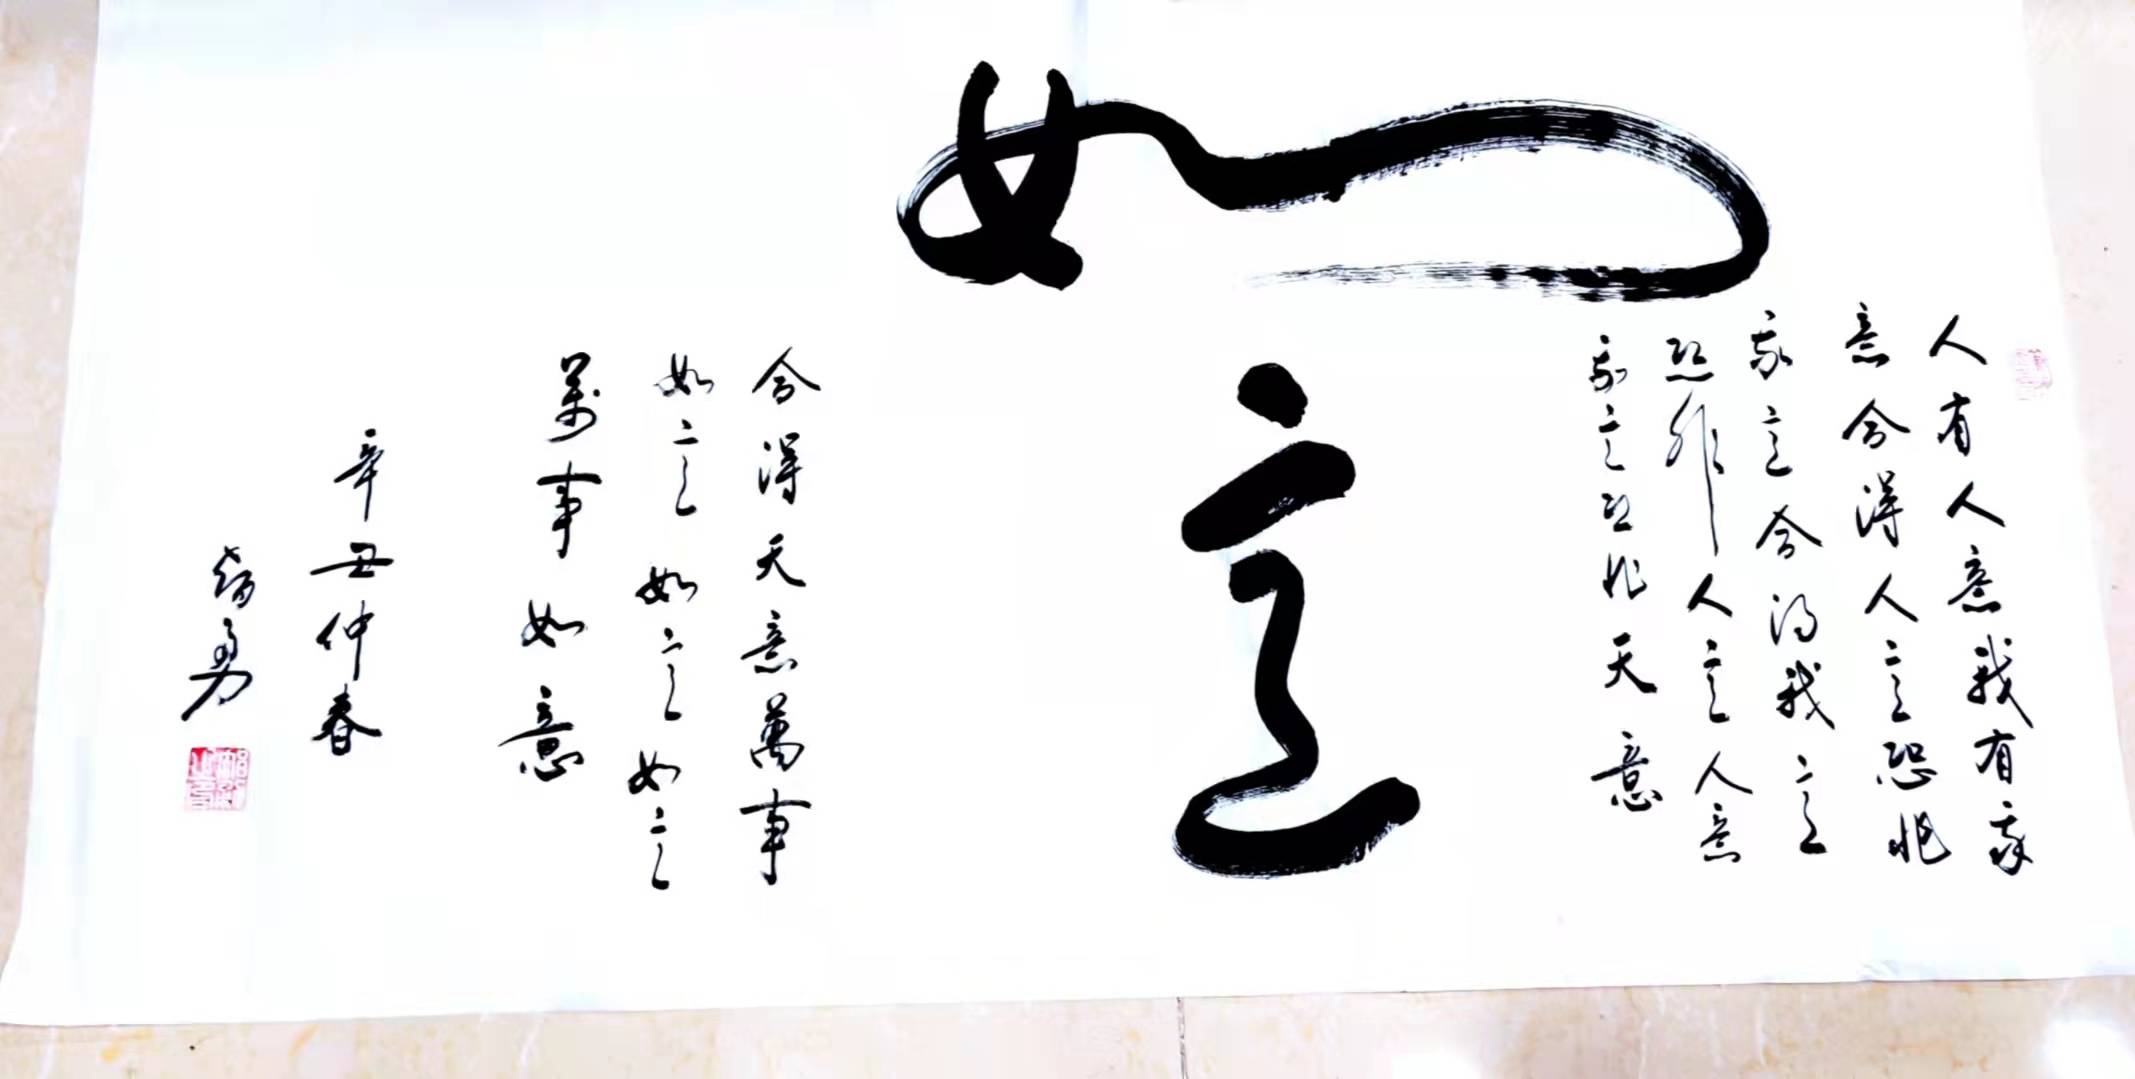 如意
人有人意我有我
意合得人意恐非
我意合得我意
恐非人意人意
我意恐非天意
合得天意萬事
如意如意如意
萬事如意
辛丑仲春
勇